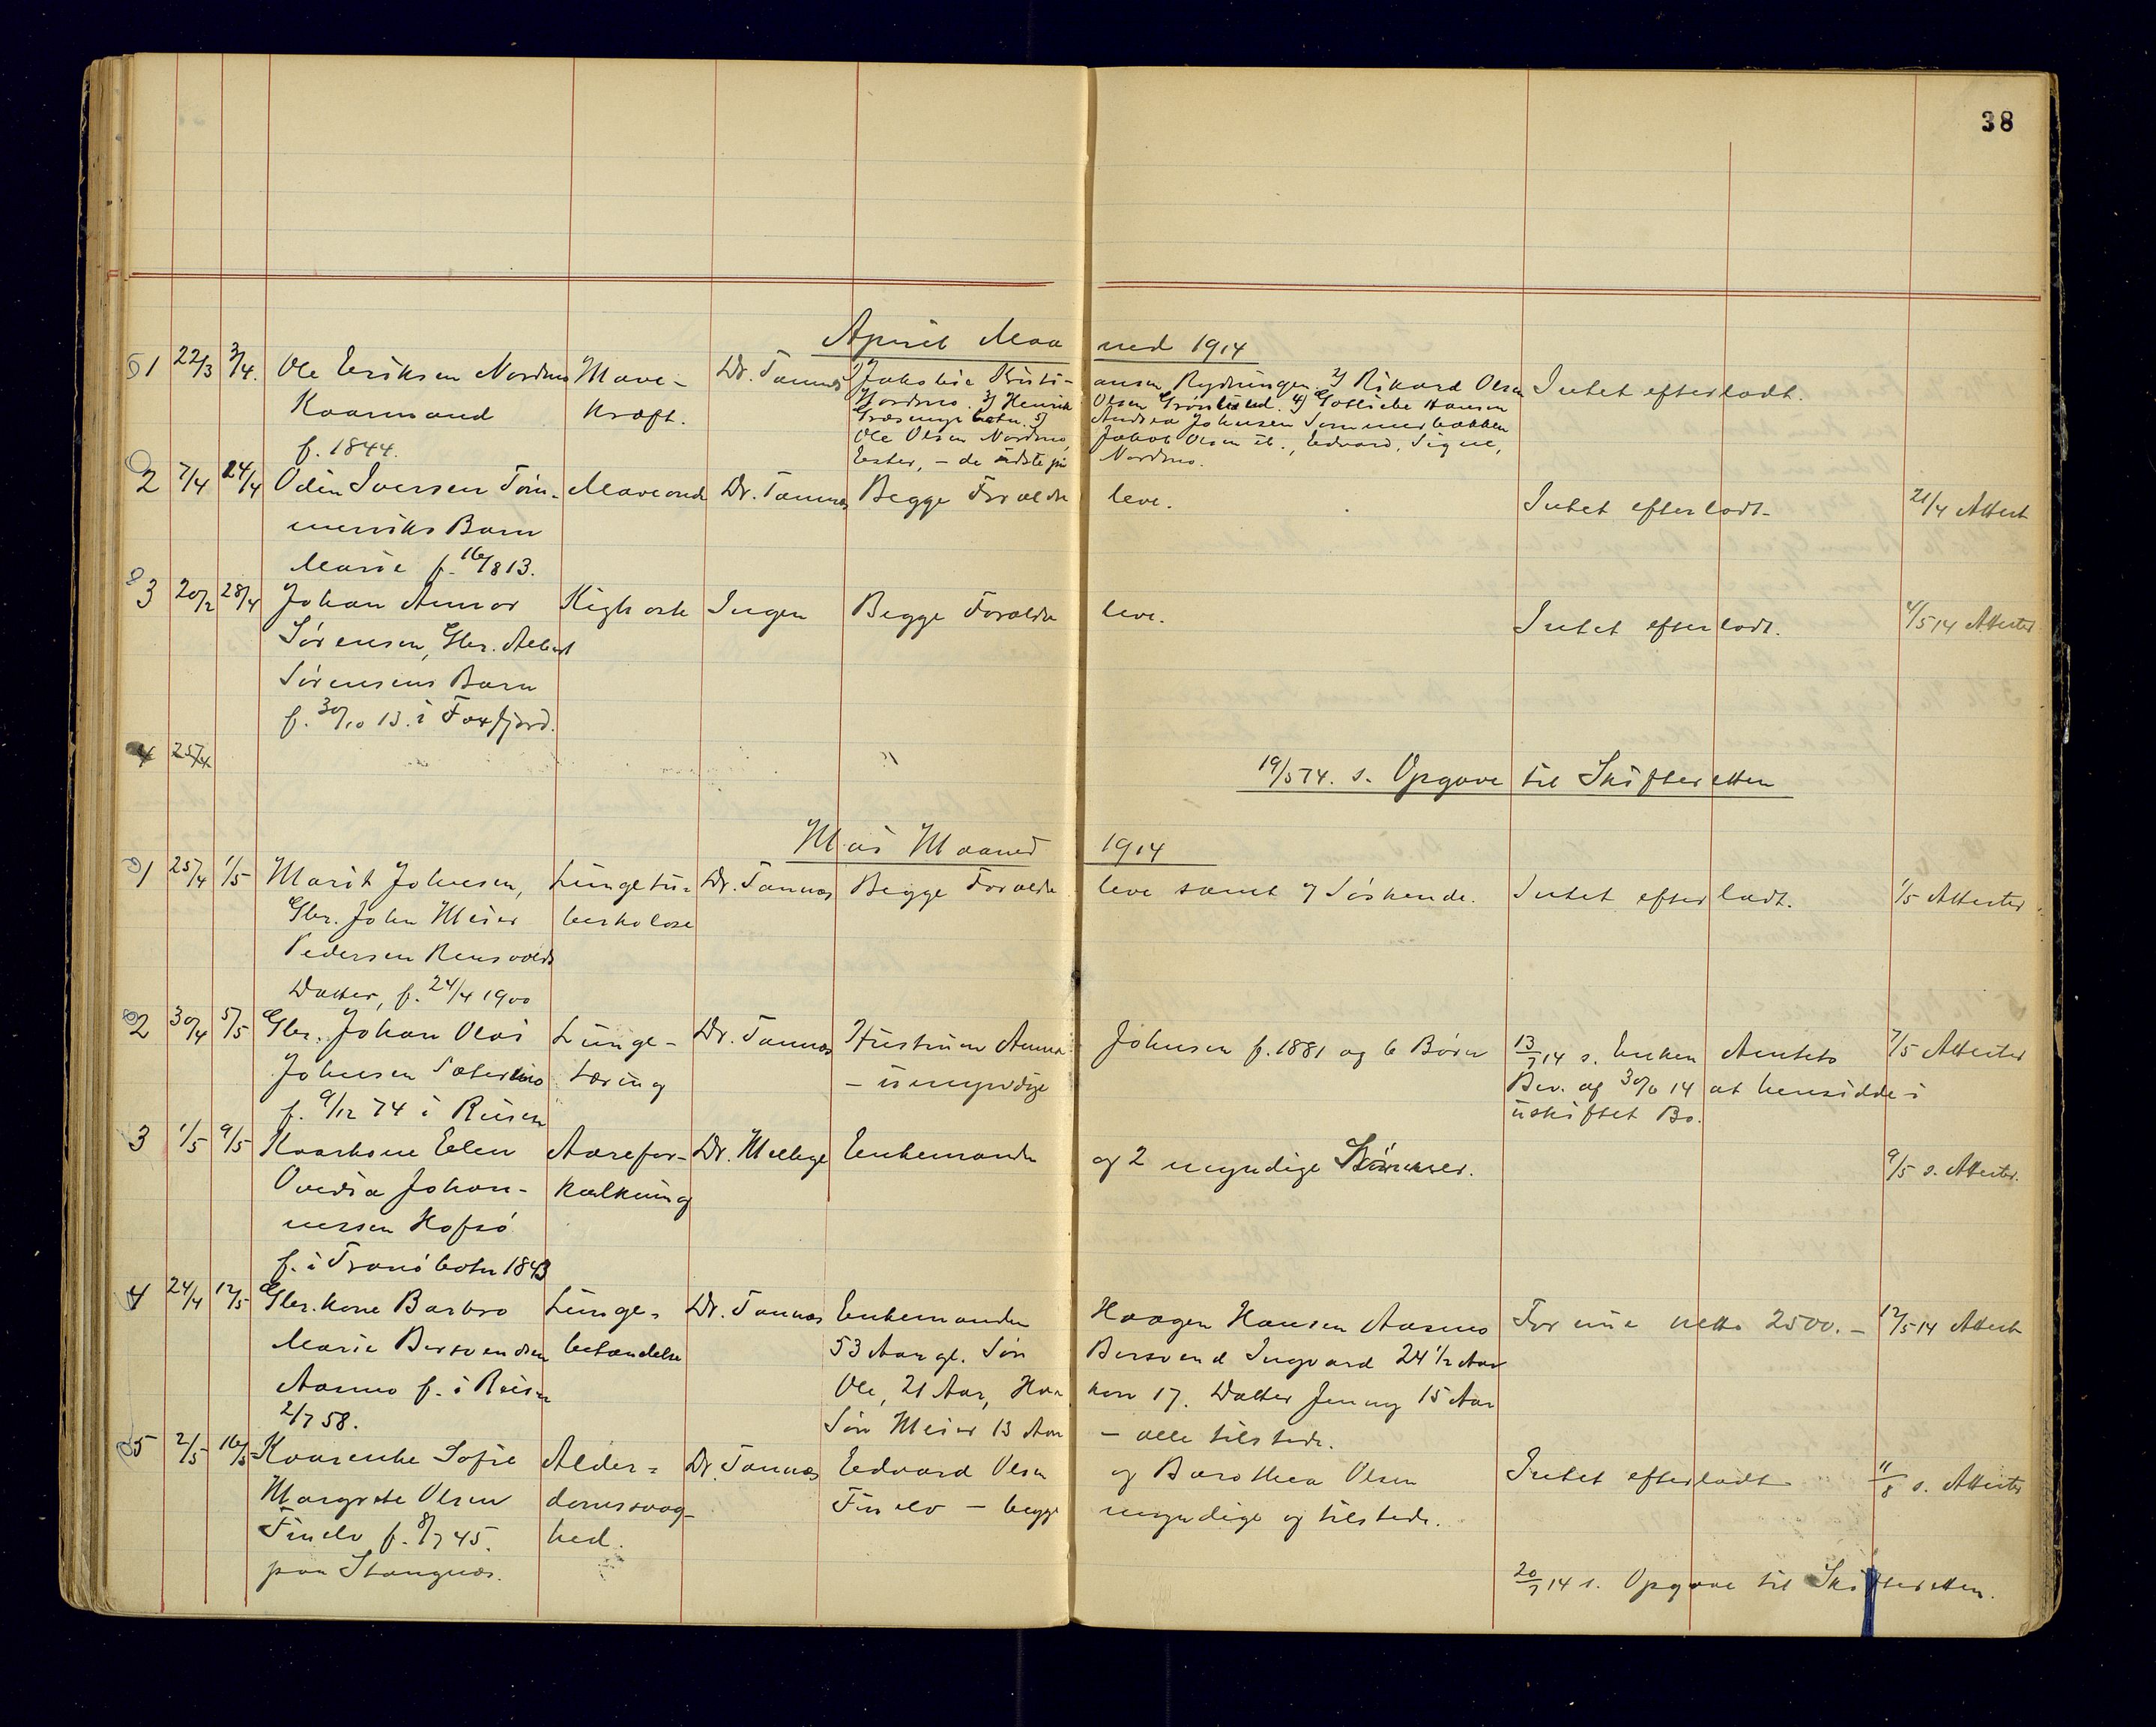 38
April Maaned 1914
1 22/3 3/4. Ole Eriksen Nordmo Mave- Dr. Tannæs 1) Jakobie Kristiansen Rydningen. 2) Rikard Olsen Intet efterladt.
Kaarmand kræft. Nordmo. 3) Henrik Olsen Grønlund. 4) Gotliebe Hansen
Græsmyrbotn. 5) Andrea Johnsen Sommerbakken
f. 1844. Ole Olsen Nordmo, Jakob Olsen ib., Edvard, Signe,
Ester, – de sidste på Nordmo.
2 7/4 24/4 Odin Iversen Tøm- Maveonde Dr. Tannæs Begge Forældre leve. Intet efterladt. 21/4 Attest
merviks Barn
Marie f. 16/8 13.
3 20/2 28/4 Johan Annar Kighoste Ingen Begge Forældre leve. Intet efterladt. 4/5 14 Attester
Sørensen, Gbr. Albert
Sørensens Barn
f. 30/10 13. i Foxfjord.
4 25/4
19/5 14. s. Opgave til Skifteretten
Mai Maaned 1914
1 25/4 1/5 Marit Johnsen, Lungetu- Dr. Tannæs Begge Forældre leve samt 7 Søskende. Intet efterladt. 1/5 Attester
Gbr. John Meier berkolose
Pedersen Rensvolds
Datter, f. 24/4 1900
2 30/4 5/5 Gbr. Johan Olai Lunge- Dr. Tannæs Hustruen Anna Johnsen f. 1881 og 6 Børn 13/7 14 s. Enken Amtets 7/5 Attester
Johnsen Sætermo tæring – umyndige Bev. af 30/6 14 at hensidde i
f. 9/12 74 i Reisen uskiftet Bo.
3 1/5 9/5 Kaarkone Elen Aarefor- Dr. Mellbye Enkemanden og 2 myndige Sønner. 9/5 s. Attester.
Ovedia Johan- kalkning
nessen Hofsø
f. i Tranøbotn 1843
4 24/4 12/5 Gbr.kone Barbro Lunge- Dr. Tannæs Enkemanden Haagen Hansen Aasmo Formue netto 2500.– 12/5 14 Attest
Marie Bersvendsen betændelse 53 Aar gl. Søn Bersvend Ingvard 24 1/2 Aar
Aasmo f. i Reisen Ole, 21 Aar, Haakon 17. Datter Jenny 15 Aar
2/7 58. Søn Meier 13 Aar – alle tilstede.
5 2/5 16/5 Kaarenke Sofie Alder- Dr. Tannæs Edvard Olsen og Dorothea Olsen Intet efterladt 11/8 s. Attester
Margrete Olsen domssvag- Finelv – begge myndige og tilstede.
Finelv f. 8/7 45. hed.
paa Stangnæs.
20/7 14 s. Opgave til Skifteretten.